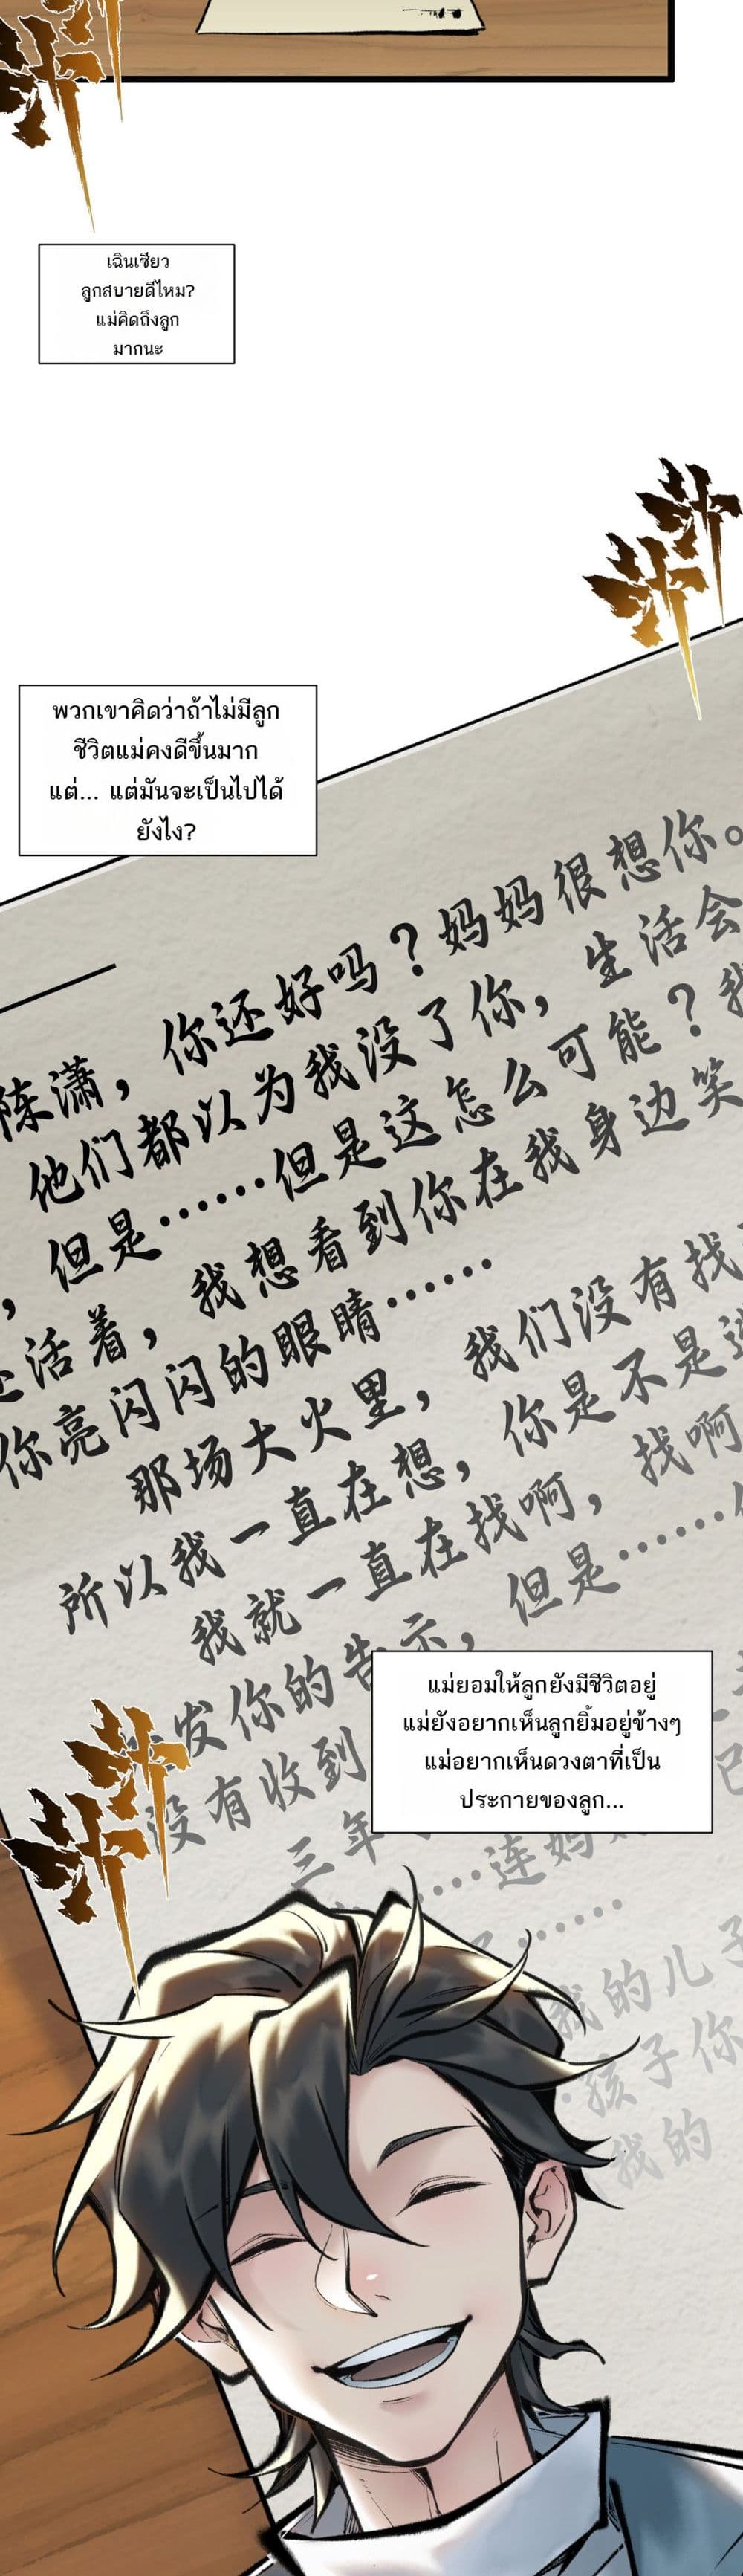 เฉินเซียว
ลูกสบายดีไหม?
แม่คิดถึงลูก
มากนะ
พวกเขาคิดว่าถ้าไม่มีลูก
ชีวิตแม่คงดีขึ้นมาก
แต่... แต่มันจะเป็นไปได้
ยังไง?
陈潇，你还好吗？妈妈很想你。
他们都以为我没了你，生活会
，但是……但是这怎么可能？我
活着，我想看到你在我身边笑
你亮闪闪的眼睛……
那场大火里，我们没有找
所以我一直在想，你是不是
我就一直在找啊，找啊
发你的告示，但是……
没有收到
แม่ยอมให้ลูกยังมีชีวิตอยู่
แม่ยังอยากเห็นลูกยิ้มอยู่ข้างๆ
แม่อยากเห็นดวงตาที่เป็น
ประกายของลูก...
三年
……连妈
……
我的儿子
孩子你
我的